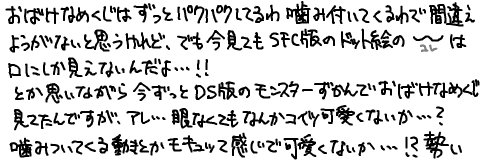 おばけなめくじはずっとパクパクしてるわ噛み付いてくるわで間違え
ようがないと思うけれど、でも今見てもSFC版のドット絵の〰は
コレ
口にしか見えないんだよ…!!
とか思いながら今ずっとDS版のモンスターずかんでおばけなめくじ
見てたんですが、アレ…眼なくてもなんかコイツ可愛くないか…?
噛みついてくる動きとかモキュッて感じで可愛くないか…!?勢い